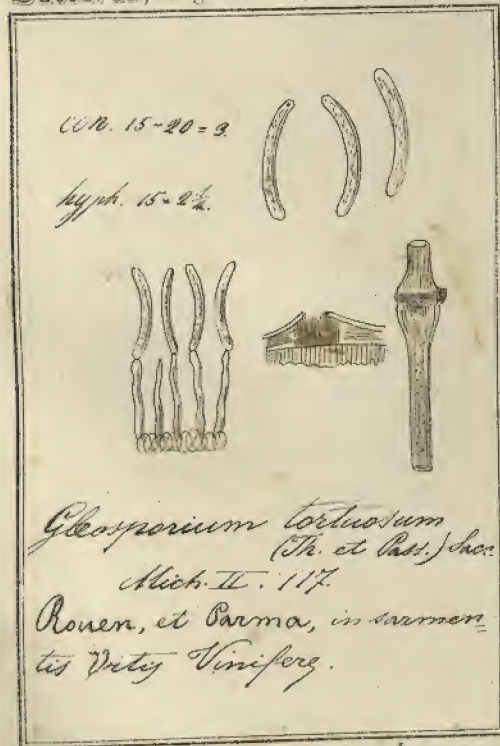 con. 15-20 = 3.
hyph. 15 = 2½.
Gleosporium tortuosum
(Th. et Pass.) Sacc.
Mich. II. 117.
Rouen, et Parma, in sarmen=
tis Vitis Vinifere.